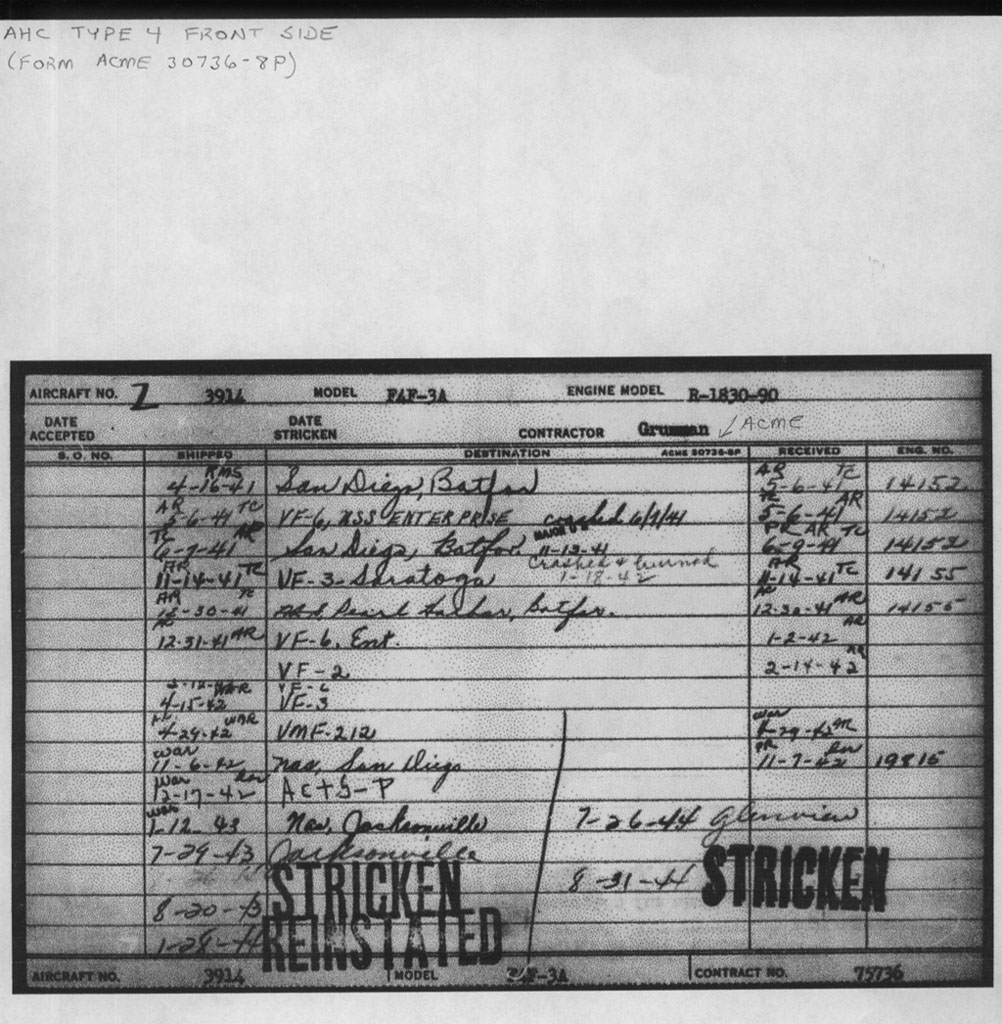 AHC TYPE 4 FRONT SIDE
(FORM ACME 30736-8P)
AIRCRAFT NO. Z 3914 MODEL F4F-3A ENGINE MODEL R-1830-90
DATE ACCEPTED DATE STRICKEN CONTRACTOR Grumman ACME
S. O. NO. SHIPPED DESTINATION ACME 30736-8P RECEIVED ENG. NO.
RMS 4-16-41 San Diego, Batfor AR TC 5-6-41 14152
AR TC 5-6-41 VF-6, USS ENTERPRISE crashed 6/7/41 TC AR 5-6-41 14152
TC AR 6-7-41 San Diego, Batfor. MAJOR 11-13-41 PR AR TC 6-9-41 14152
AR TC 11-14-41 VF-3-Saratoga Crashed & burned 1-18-42 AR TC 11-14-41 14155
AR TC 12-30-41 Pearl Harbor, Batfor. AR 12-30-41 14155
AR 12-31-41 VF-6, Ent. AR 1-2-42
VF-2 AR 2-14-42
VF-6
4-15-42 VF-3
WAR 4-29-42 VMF-212 War 4-29-42
War 11-6-42 Nas, San Diego PR 11-7-42 19815
War 12-17-42 ACTG-P
War 1-12-43 Nas, Jacksonville 7-26-44 Glenview
7-29-43 Jacksonville
STRICKEN 8-31-44 STRICKEN
8-20-43
1-28-44 REINSTATED
AIRCRAFT NO. 3914 MODEL F4F-3A CONTRACT NO. 75736